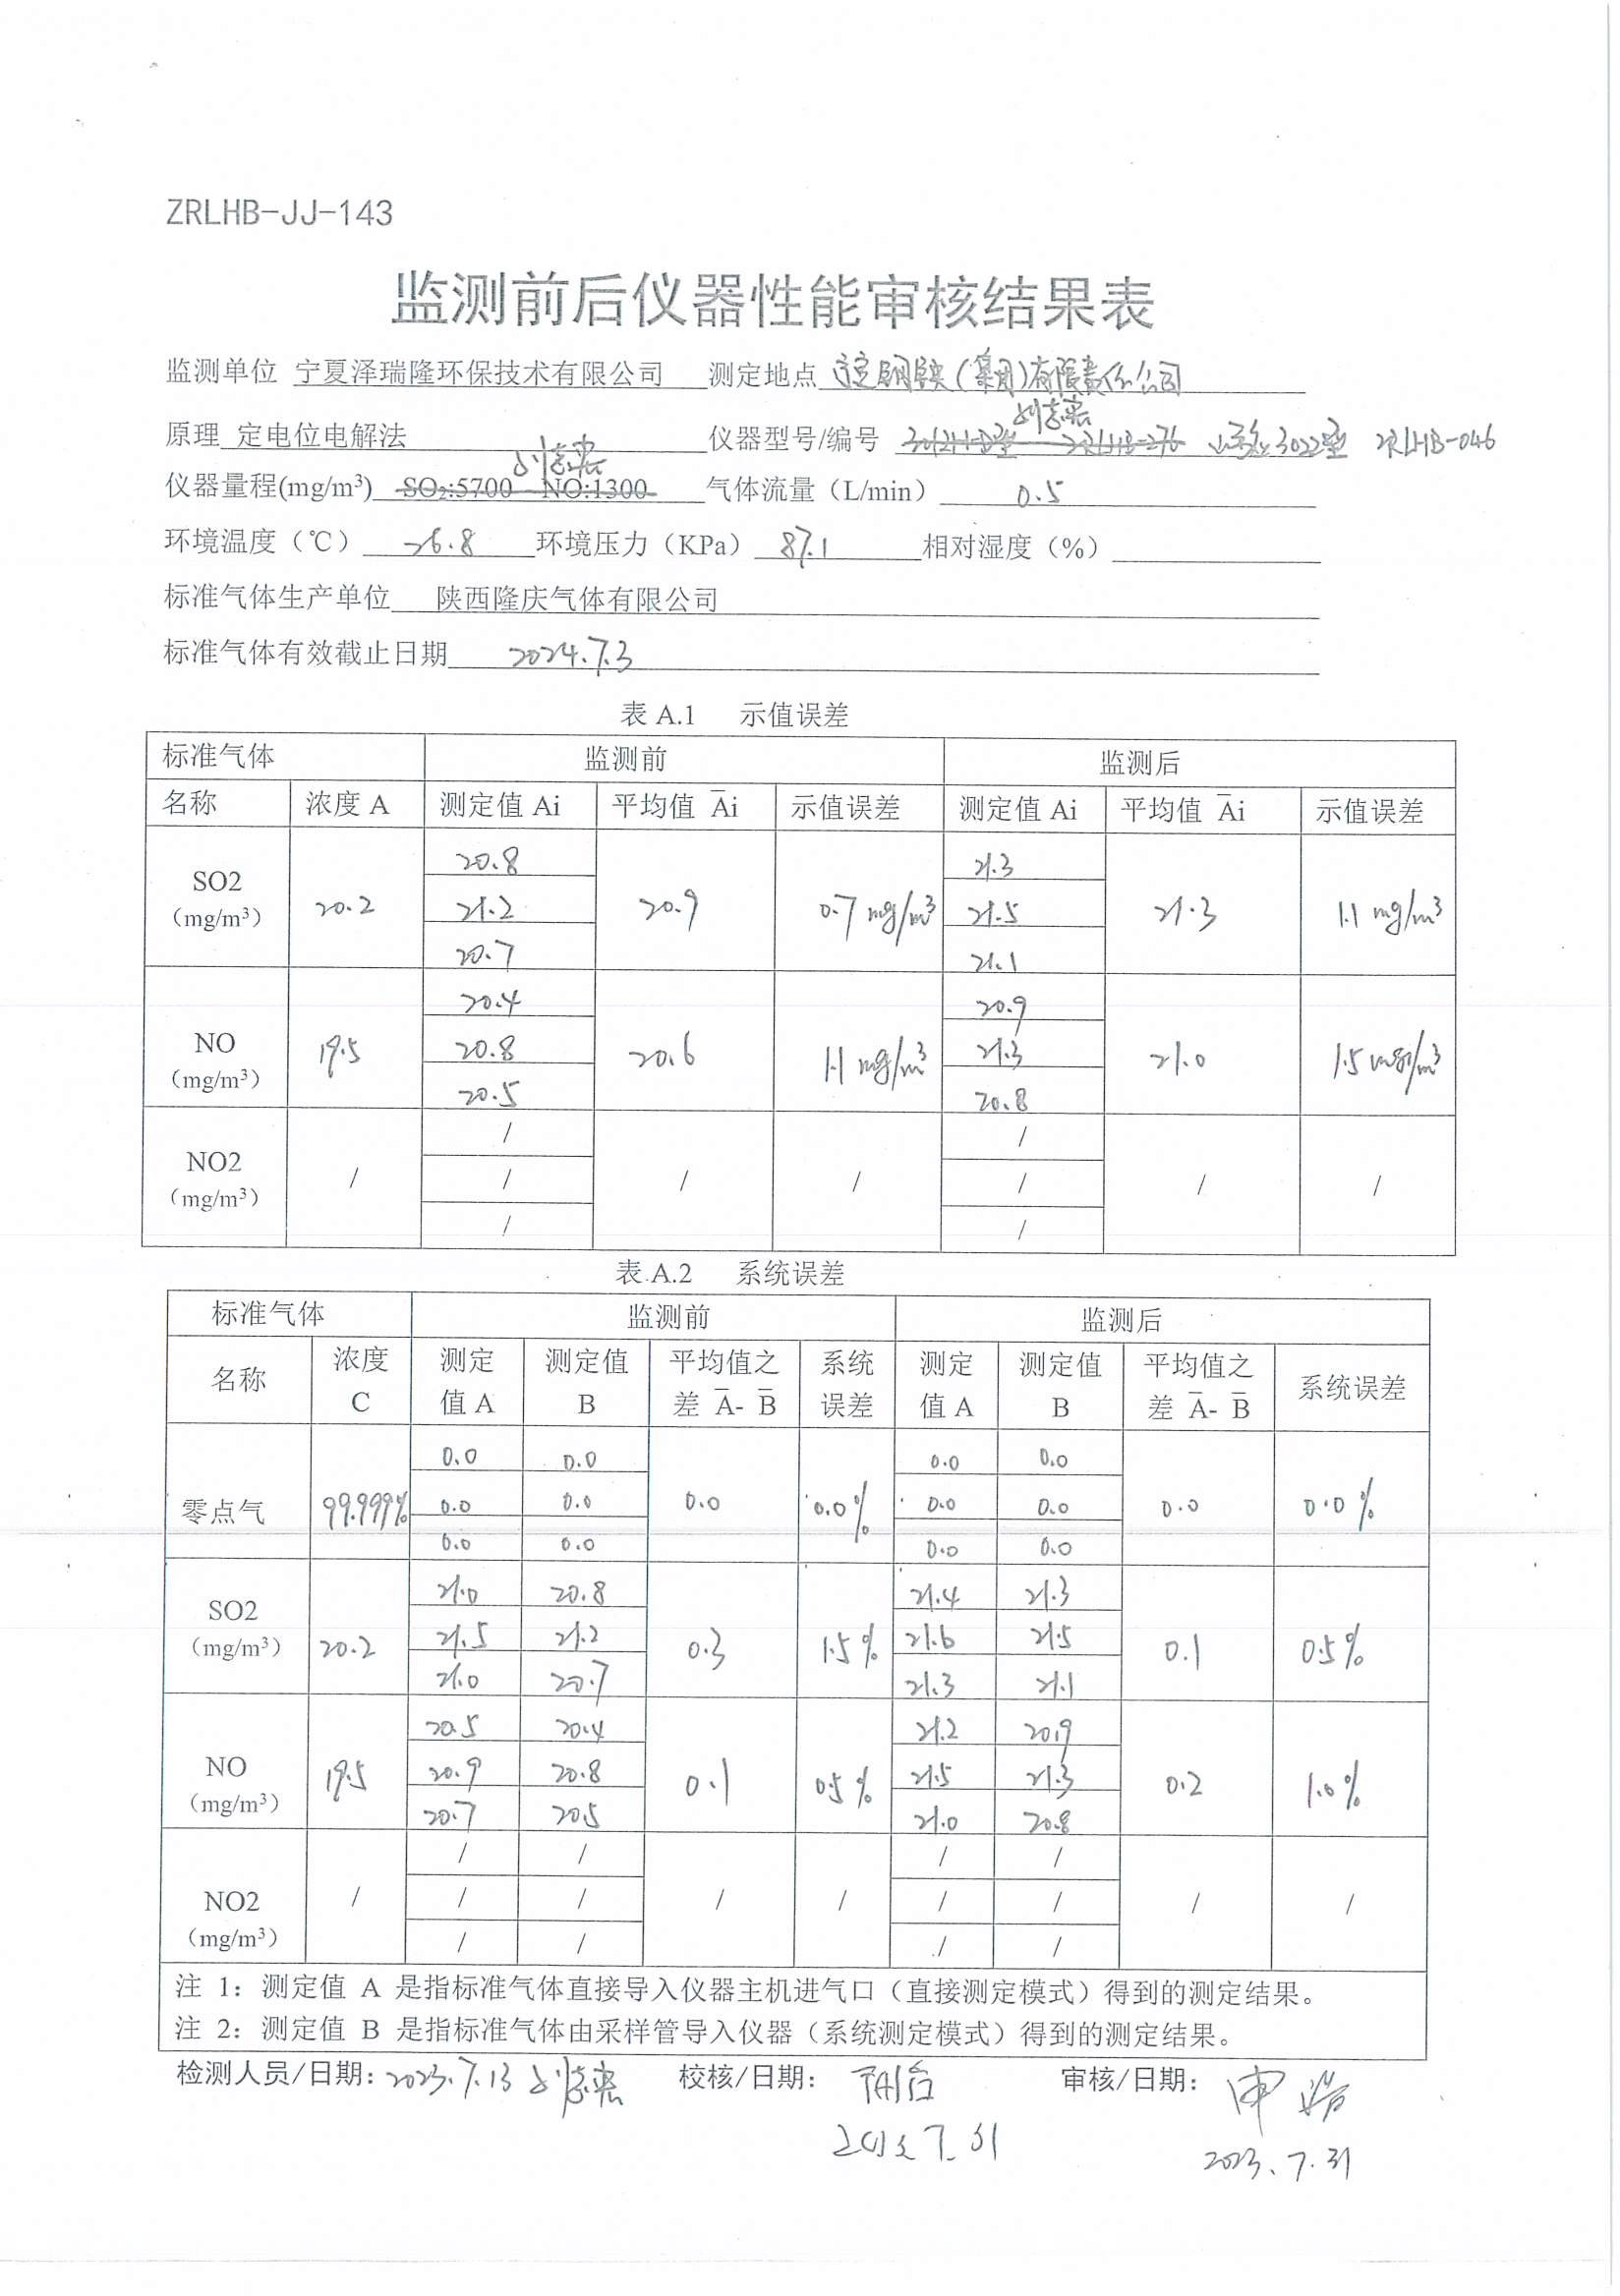 ZRLHB-JJ-143
监测前后仪器性能审核结果表
监测单位 宁夏泽瑞隆环保技术有限公司 测定地点 钢铁(集团)有限责任公司
原理 定电位电解法 仪器型号/编号 3012H-D型 ZRLHB-276 3022型 ZRLHB-046
仪器量程(mg/m³) SO₂:5700 NO:1300 气体流量（L/min） 0.5
环境温度（℃） 26.8 环境压力（KPa） 87.1 相对湿度（%）
标准气体生产单位 陕西隆庆气体有限公司
标准气体有效截止日期 2024.7.3
表 A.1 示值误差
标准气体 监测前 监测后
名称 浓度 A 测定值 Ai 平均值 A̅i 示值误差 测定值 Ai 平均值 A̅i 示值误差
20.8 21.3
SO2 (mg/m³) 20.2 21.2 20.9 0.7 mg/m³ 21.5 21.3 1.1 mg/m³
20.7 21.1
20.4 20.9
NO (mg/m³) 19.5 20.8 20.6 1.1 mg/m³ 21.3 21.0 1.5 mg/m³
20.5 20.8
/ /
NO2 (mg/m³) / / / / / / /
/ /
表 A.2 系统误差
标准气体 监测前 监测后
名称 浓度 C 测定值 A 测定值 B 平均值之差 A̅- B̅ 系统误差 测定值 A 测定值 B 平均值之差 A̅- B̅ 系统误差
0.0 0.0 0.0 0.0
零点气 99.999% 0.0 0.0 0.0 0.0% 0.0 0.0 0.0 0.0%
0.0 0.0 0.0 0.0
21.0 20.8 21.4 21.3
SO2 (mg/m³) 20.2 21.5 21.2 0.3 1.5% 21.6 21.5 0.1 0.5%
21.0 20.7 21.3 21.1
20.5 20.4 21.2 20.9
NO (mg/m³) 19.5 20.9 20.8 0.1 0.5% 21.5 21.3 0.2 1.0%
20.7 20.5 21.0 20.8
/ / / /
NO2 (mg/m³) / / / / / / / / /
/ / / /
注 1：测定值 A 是指标准气体直接导入仪器主机进气口（直接测定模式）得到的测定结果。
注 2：测定值 B 是指标准气体由采样管导入仪器（系统测定模式）得到的测定结果。
检测人员/日期：2023.7.13 校核/日期： 审核/日期：
2023.7.31